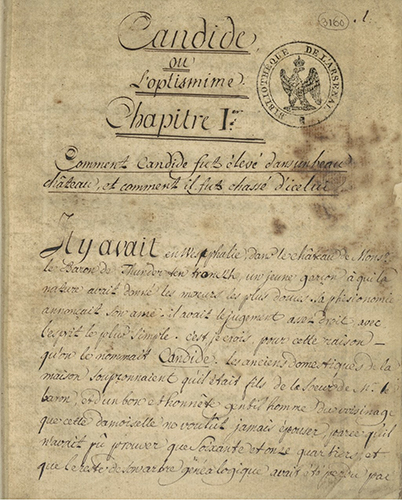 3160
1.
Candide,
ou
L'optimisme.
Chapitre I.r
BIBLIOTHÈQUE DE L'ARSENAL
Comment Candide fut élevé dans un beau
château, et comment il fut chassé d'icelui
Il y avait en Westphalie, dans le château de Mons.
le Baron de Thunder ten tronckh, un jeune garçon à qui la
nature avait donné les mœurs les plus douces. Sa phisionomie
annonçait son ame. il avait le jugement assez droit, avec
l'esprit le plus simple. c'est, je crois, pour cette raison
qu'on le nommait Candide. les anciens domestiques de la
maison soupçonnaient qu'il était fils de la Sœur de M. le
baron, et d'un bon et honnête gentilhomme du voisinage
que cette damoiselle ne voulut jamais épouser, parce qu'il
n'avait pû prouver que soixante et onze quartiers, et
que le reste de son arbre généalogique avait été perdu par